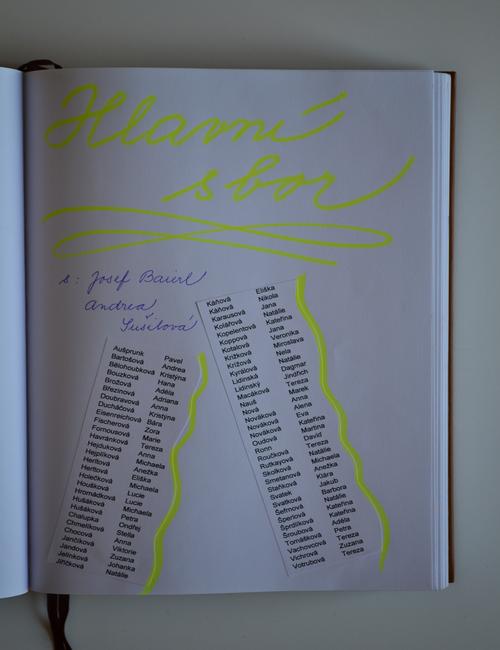 Hlavní
sbor
s: Josef Baierl
Andrea
Sušilová
Aušprunk Pavel
Bartošová Andrea
Bělohoubková Kristýna
Bouzková Hana
Brožová Adéla
Březinová Adriana
Doubravová Anna
Ducháčová Kristýna
Eisenreichová Bára
Fischerová Zora
Fornousová Marie
Havránková Tereza
Hejduková Anna
Hejplíková Michaela
Herltová Anežka
Herltová Eliška
Holečková Michaela
Houšková Lucie
Hromádková Lucie
Hušáková Michaela
Hušáková Petra
Chalupka Ondřej
Chmelíková Stella
Chocová Anna
Jančíková Viktorie
Jandová Zuzana
Jelínková Johanka
Jiřičková Natálie
Káňová Eliška
Káňová Nikola
Karausová Jana
Kolářová Natálie
Kopelentová Kateřina
Koppová Jana
Kotalová Veronika
Křížková Miroslava
Křížová Nela
Kyrálová Natálie
Lidinská Dagmar
Lidinský Jindřich
Macáková Tereza
Nauš Marek
Nová Anna
Nováková Alena
Nováková Eva
Nováková Kateřina
Oudová Martina
Ronn David
Roučková Tereza
Rutkayová Natálie
Skolková Michaela
Smetanová Anežka
Staňková Klára
Svatek Jakub
Svatková Barbora
Šefrnová Natálie
Šperlová Kateřina
Šprdlíková Kateřina
Šroubová Adéla
Tomášková Petra
Vachovcová Tereza
Vichrová Zuzana
Votrubová Tereza